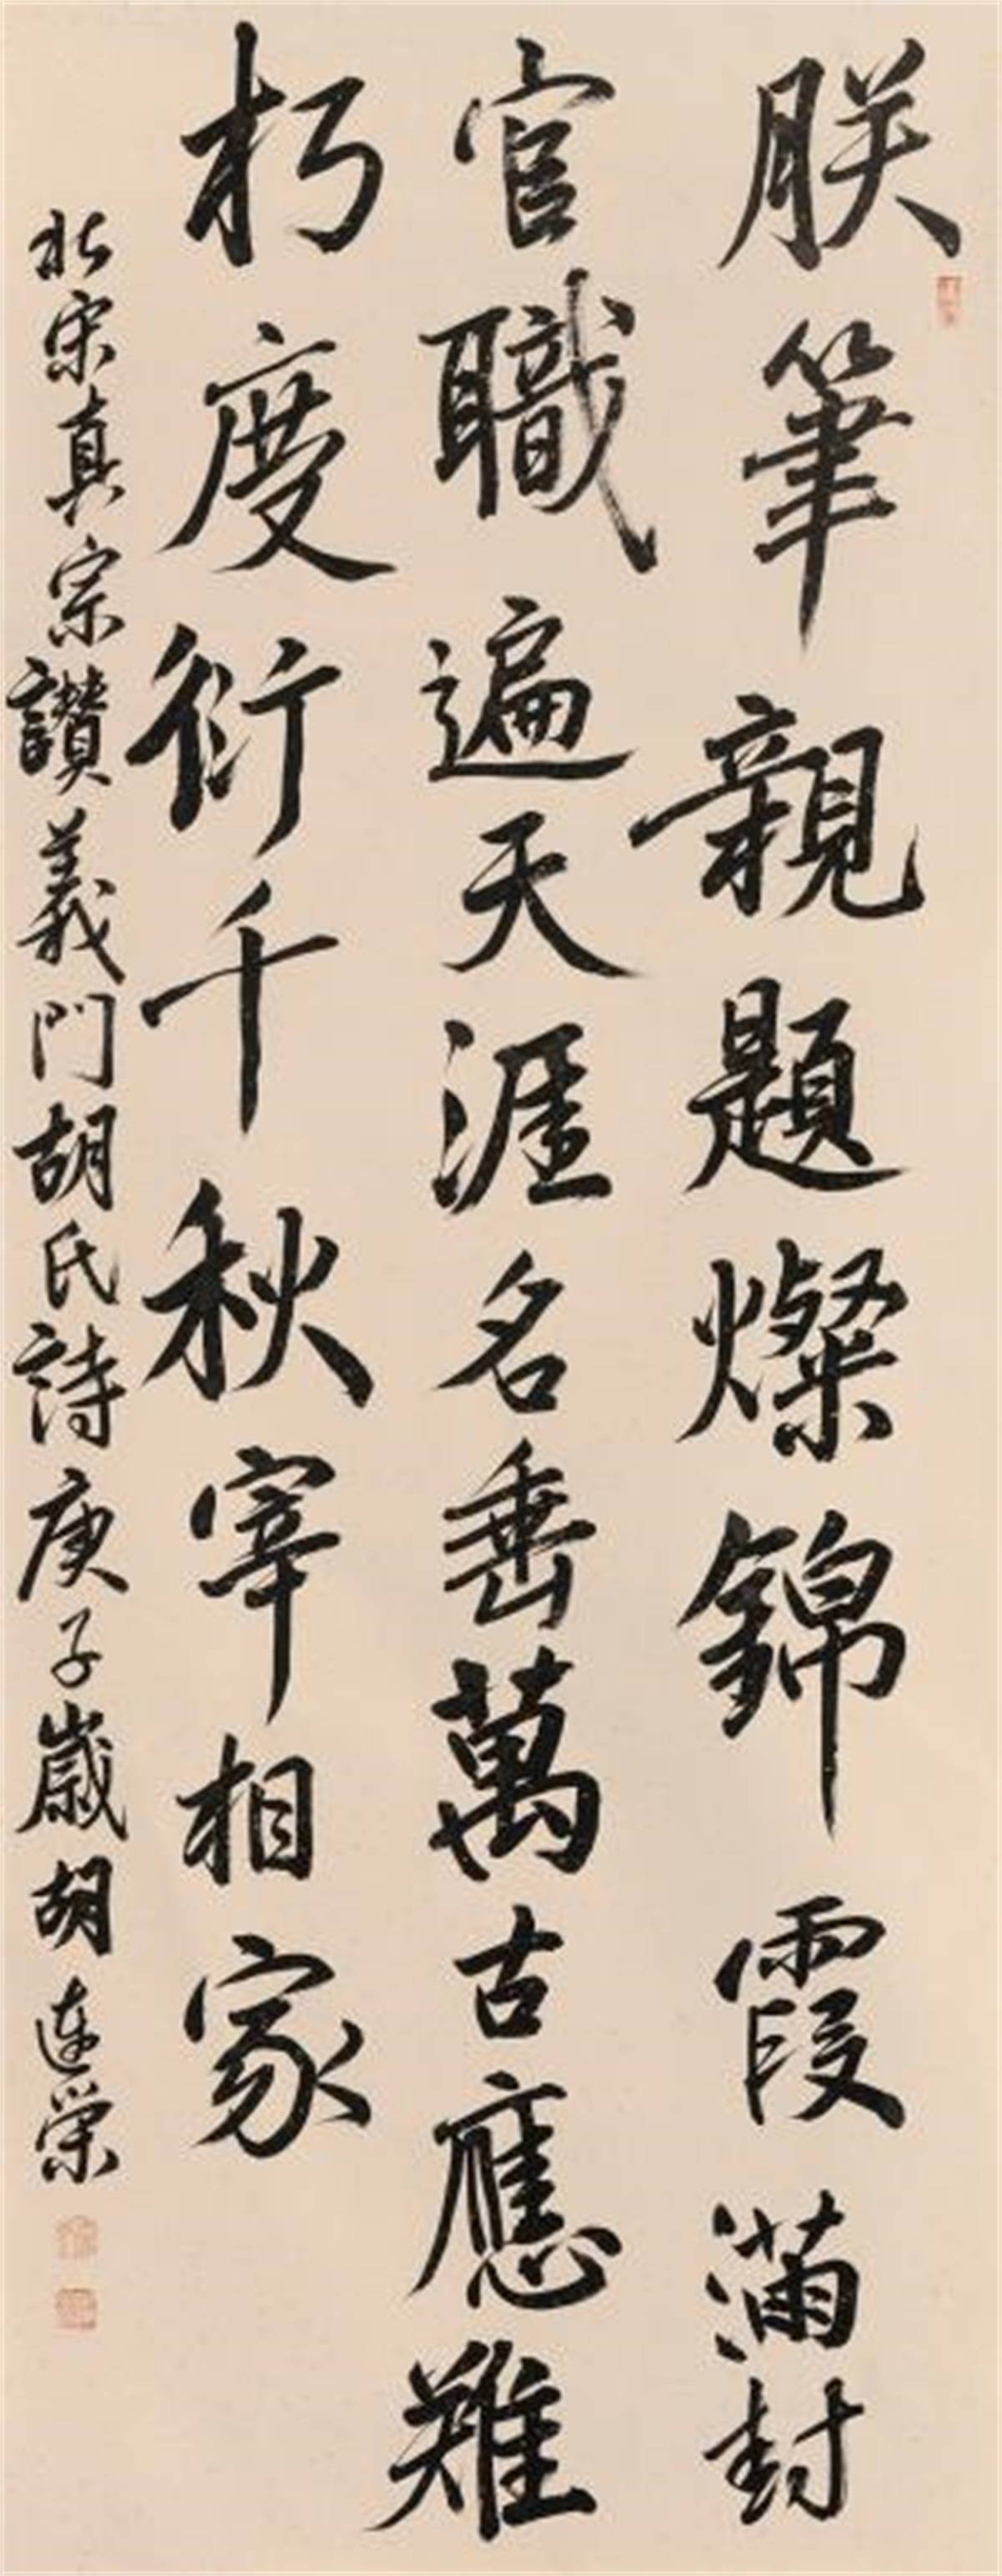 朕筆親題燦錦霞滿封
官職遍天涯名垂萬古應難
朽度衍千秋宰相家
北宋真宗讚義門胡氏詩庚子歲胡連榮